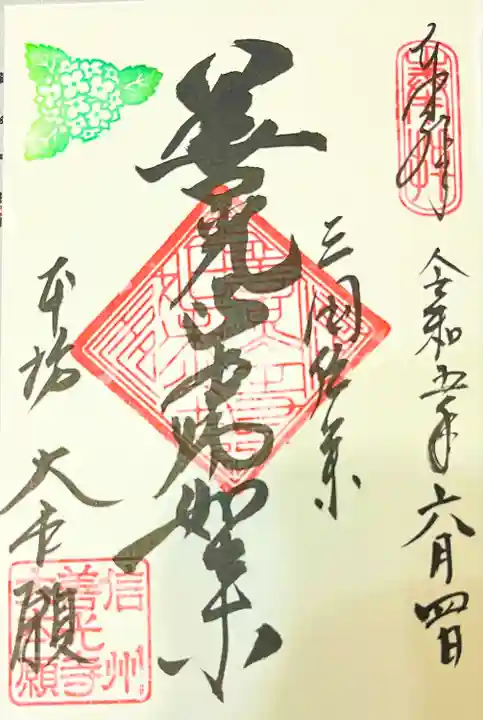 奉拝
令和五年六月四日
三国伝来
善光寺如来
本坊
大本願
信州
善光寺
大本願